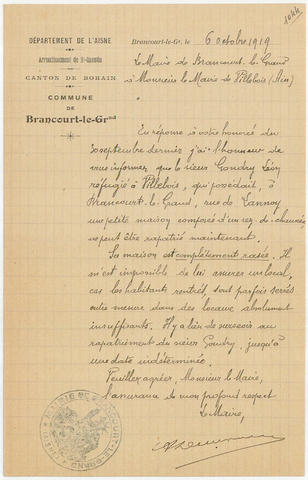 1044
DÉPARTEMENT DE L'AISNE
Arrondissement de St-Quentin
CANTON DE BOHAIN
COMMUNE
DE
Brancourt-le-Grnd
Brancourt-le-Gr, le 6 octobre 1919
Le Maire de Brancourt-le-Grand
à Monsieur le Maire de Villebois (Ain)
En réponse à votre honoré du
30 septembre dernier j'ai l'honneur de
vous informer que le sieur Gondry Léon
réfugié à Villebois, qui possédait, à
Brancourt-le-Grand, rue de Lannoy
une petite maison composée d'un rez-de-chaussée,
ne peut être rapatrié maintenant.
Sa maison est complètement rasée. Il
m'est impossible de lui assurer un local,
car les habitants rentrés, sont parfois serrés
outre mesure dans des locaux absolument
insuffisants. Il y a lieu de surseoir au
rapatriement du sieur Gondry, jusqu'à
une date indéterminée.
Veuillez agréer, Monsieur le Maire,
l'assurance de mon profond respect
Le Maire,